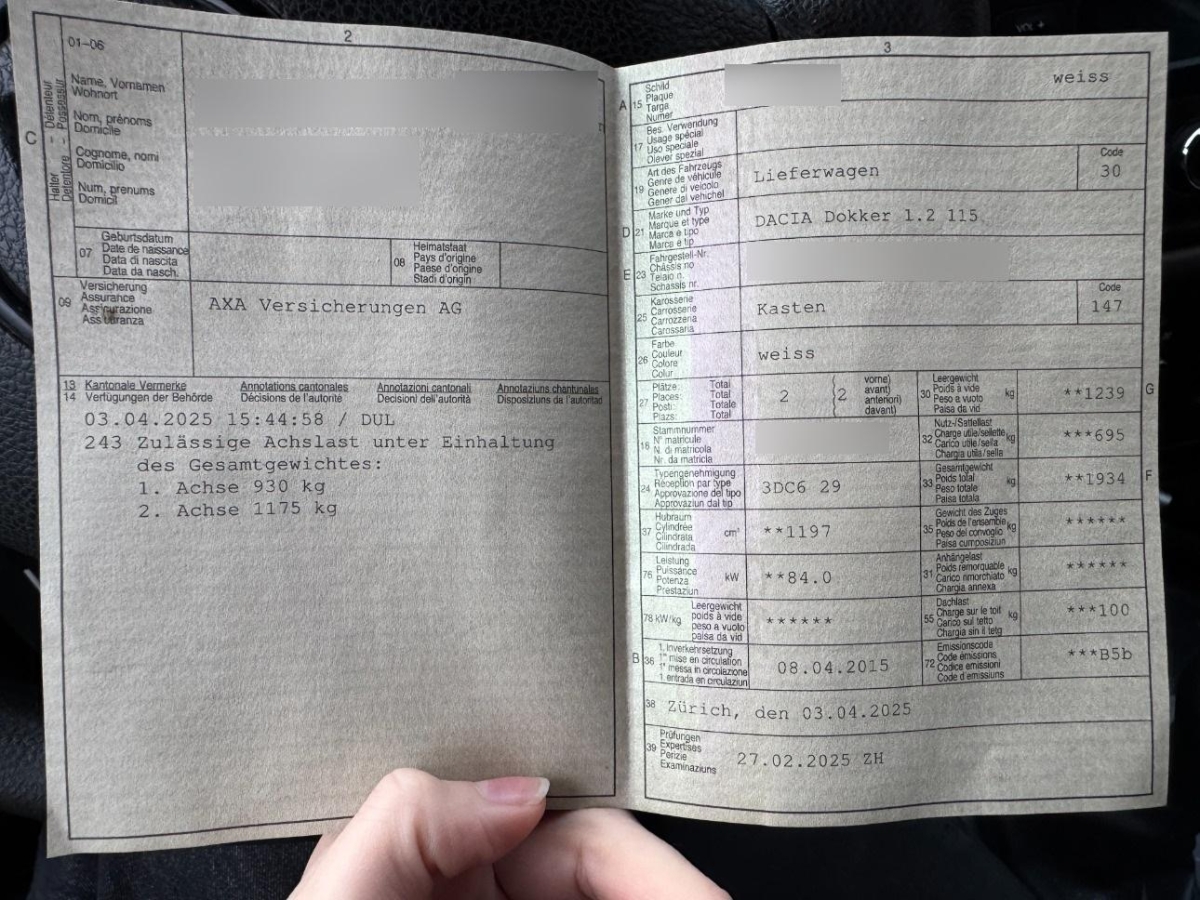 2
01-06
C
Halter Détenteur
Detentore Possessur
Name, Vornamen
Wohnort
Nom, prénoms
Domicile
Cognome, nomi
Domicilio
Num, prenums
Domicil
07
Geburtsdatum
Date de naissance
Data di nascita
Data da nasch.
08
Heimatstaat
Pays d'origine
Paese d'origine
Stadi d'origin
09
Versicherung
Assurance
Assicurazione
Assicuranza
AXA Versicherungen AG
13 Kantonale Vermerke Annotations cantonales Annotazioni cantonali Annotaziuns chantunalas
14 Verfügungen der Behörde Décisions de l'autorité Decisioni dell'autorità Disposiziuns da l'autoritad
03.04.2025 15:44:58 / DUL
243 Zulässige Achslast unter Einhaltung
des Gesamtgewichtes:
1. Achse 930 kg
2. Achse 1175 kg
3
A 15
Schild
Plaque
Targa
Numer
weiss
17
Bes. Verwendung
Usage spécial
Uso speciale
Diever spezial
19
Art des Fahrzeugs
Genre de véhicule
Genere di veicolo
Gener dal vehichel
Lieferwagen
Code
30
D 21
Marke und Typ
Marque et type
Marca e tipo
Marca e tip
DACIA Dokker 1.2 115
E 23
Fahrgestell-Nr.
Châssis no
Telaio n.
Schassis nr.
25
Karosserie
Carrosserie
Carrozzeria
Carossaria
Kasten
Code
147
26
Farbe
Couleur
Colore
Colur
weiss
27
Plätze: Total
Places: Total
Posti: Totale
Plazs: Total
2
(2
vorne)
avant)
anteriori)
davant)
30
Leergewicht
Poids à vide
Peso a vuoto
Paisa da vid
kg
**1239
G
18
Stammnummer
N° matricule
N. di matricola
Nr. da matricla
32
Nutz-/Sattellast
Charge utile/sellette
Carico utile/sella
Chargia utila/sella
kg
***695
24
Typengenehmigung
Réception par type
Approvazione del tipo
Approvaziun dal tip
3DC6 29
33
Gesamtgewicht
Poids total
Peso totale
Paisa totala
kg
**1934
F
37
Hubraum
Cylindrée
Cilindrata
Cilindrada
cm³
**1197
35
Gewicht des Zuges
Poids de l'ensemble
Peso del convoglio
Paisa cumposiziun
kg
******
76
Leistung
Puissance
Potenza
Prestaziun
kW
**84.0
31
Anhängelast
Poids remorquable
Carico rimorchiato
Chargia annexa
kg
******
78 kW/kg
Leergewicht
poids à vide
peso a vuoto
paisa da vid
******
55
Dachlast
Charge sur le toit
Carico sul tetto
Chargia sin il tetg
kg
***100
B 36
1. Inverkehrsetzung
1re mise en circulation
1a messa in circolazione
1. entrada en circulaziun
08.04.2015
72
Emissionscode
Code émissions
Codice emissioni
Code d'emissiuns
***B5b
38 Zürich, den 03.04.2025
39
Prüfungen
Expertises
Perizie
Examinaziuns
27.02.2025 ZH